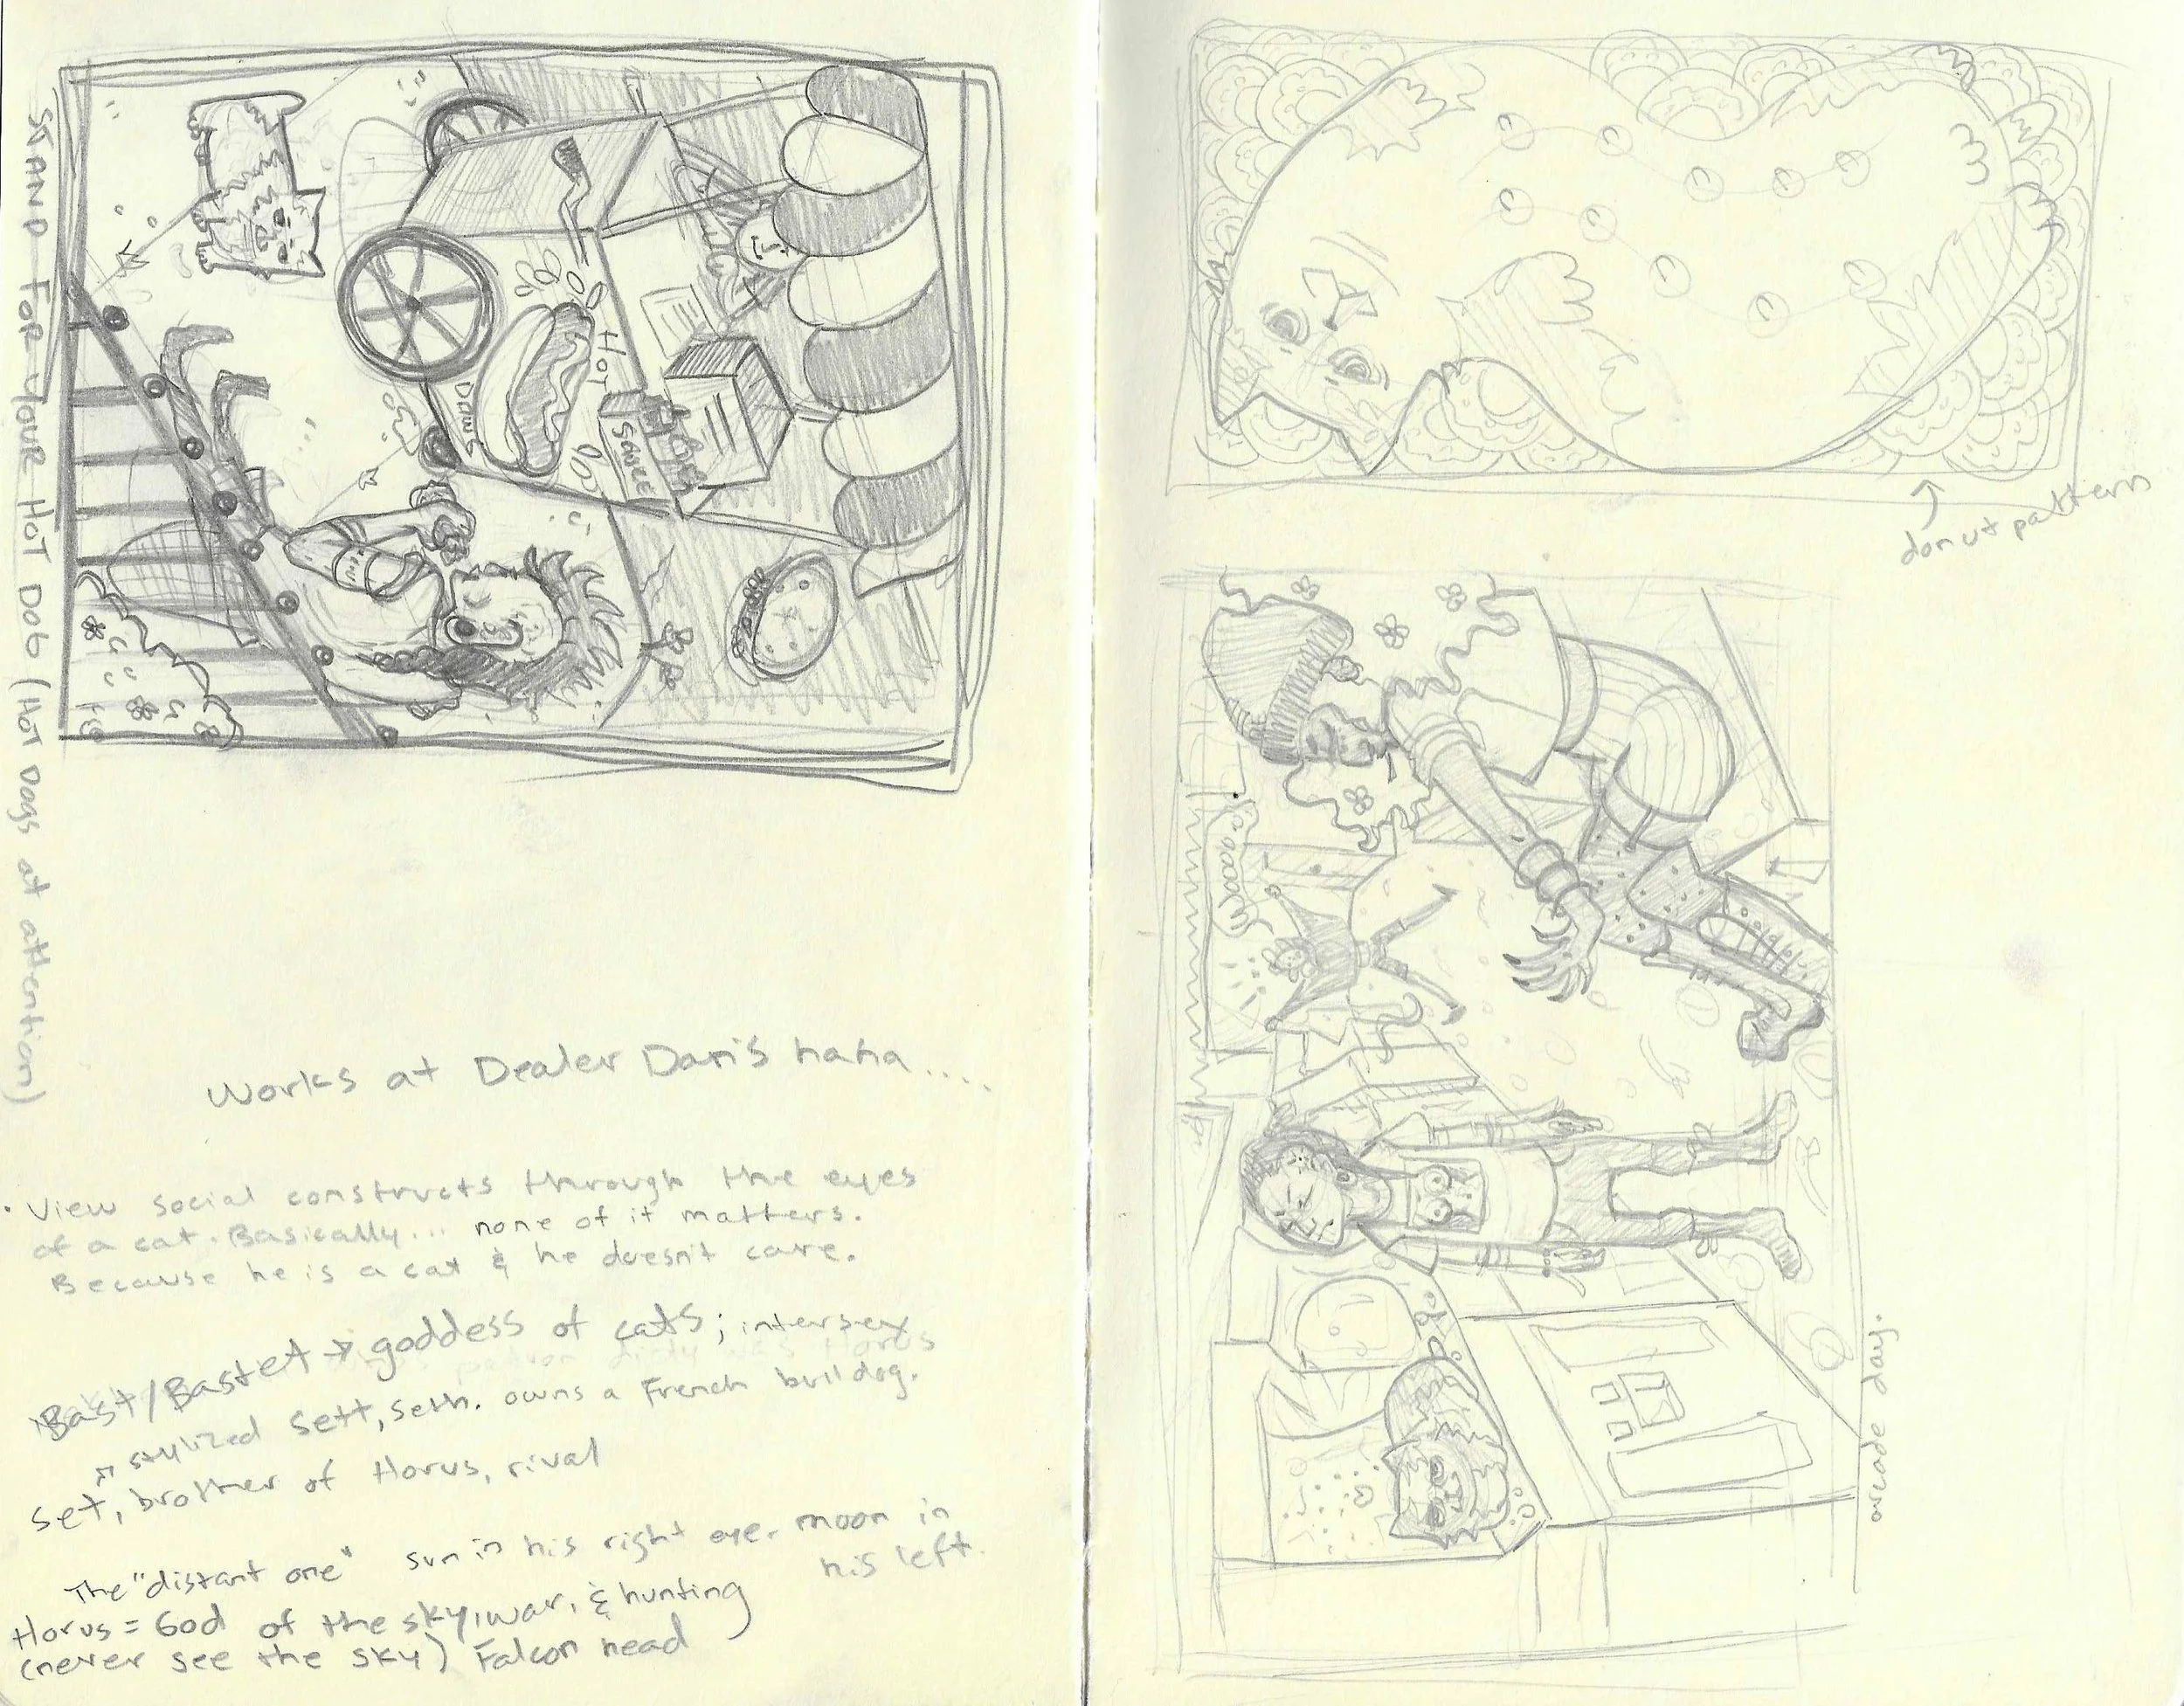 STAND FOR YOUR HOT DOG (HOT DOGS at attention)
HOT
DAWS
SAUCE
donut pattern
Works at Dealer Dan's haha....
• View social constructs through the eyes
of a cat. Basically... none of it matters.
Because he is a cat & he doesn't care.
Bast/Bastet → goddess of cats; intersex
stylized Sett, Seth. owns a French bulldog.
Set, brother of Horus, rival
The "distant one" sun in his right eye. moon in
his left.
Horus = God of the sky, war, & hunting
(never see the sky) Falcon head
arcade day.